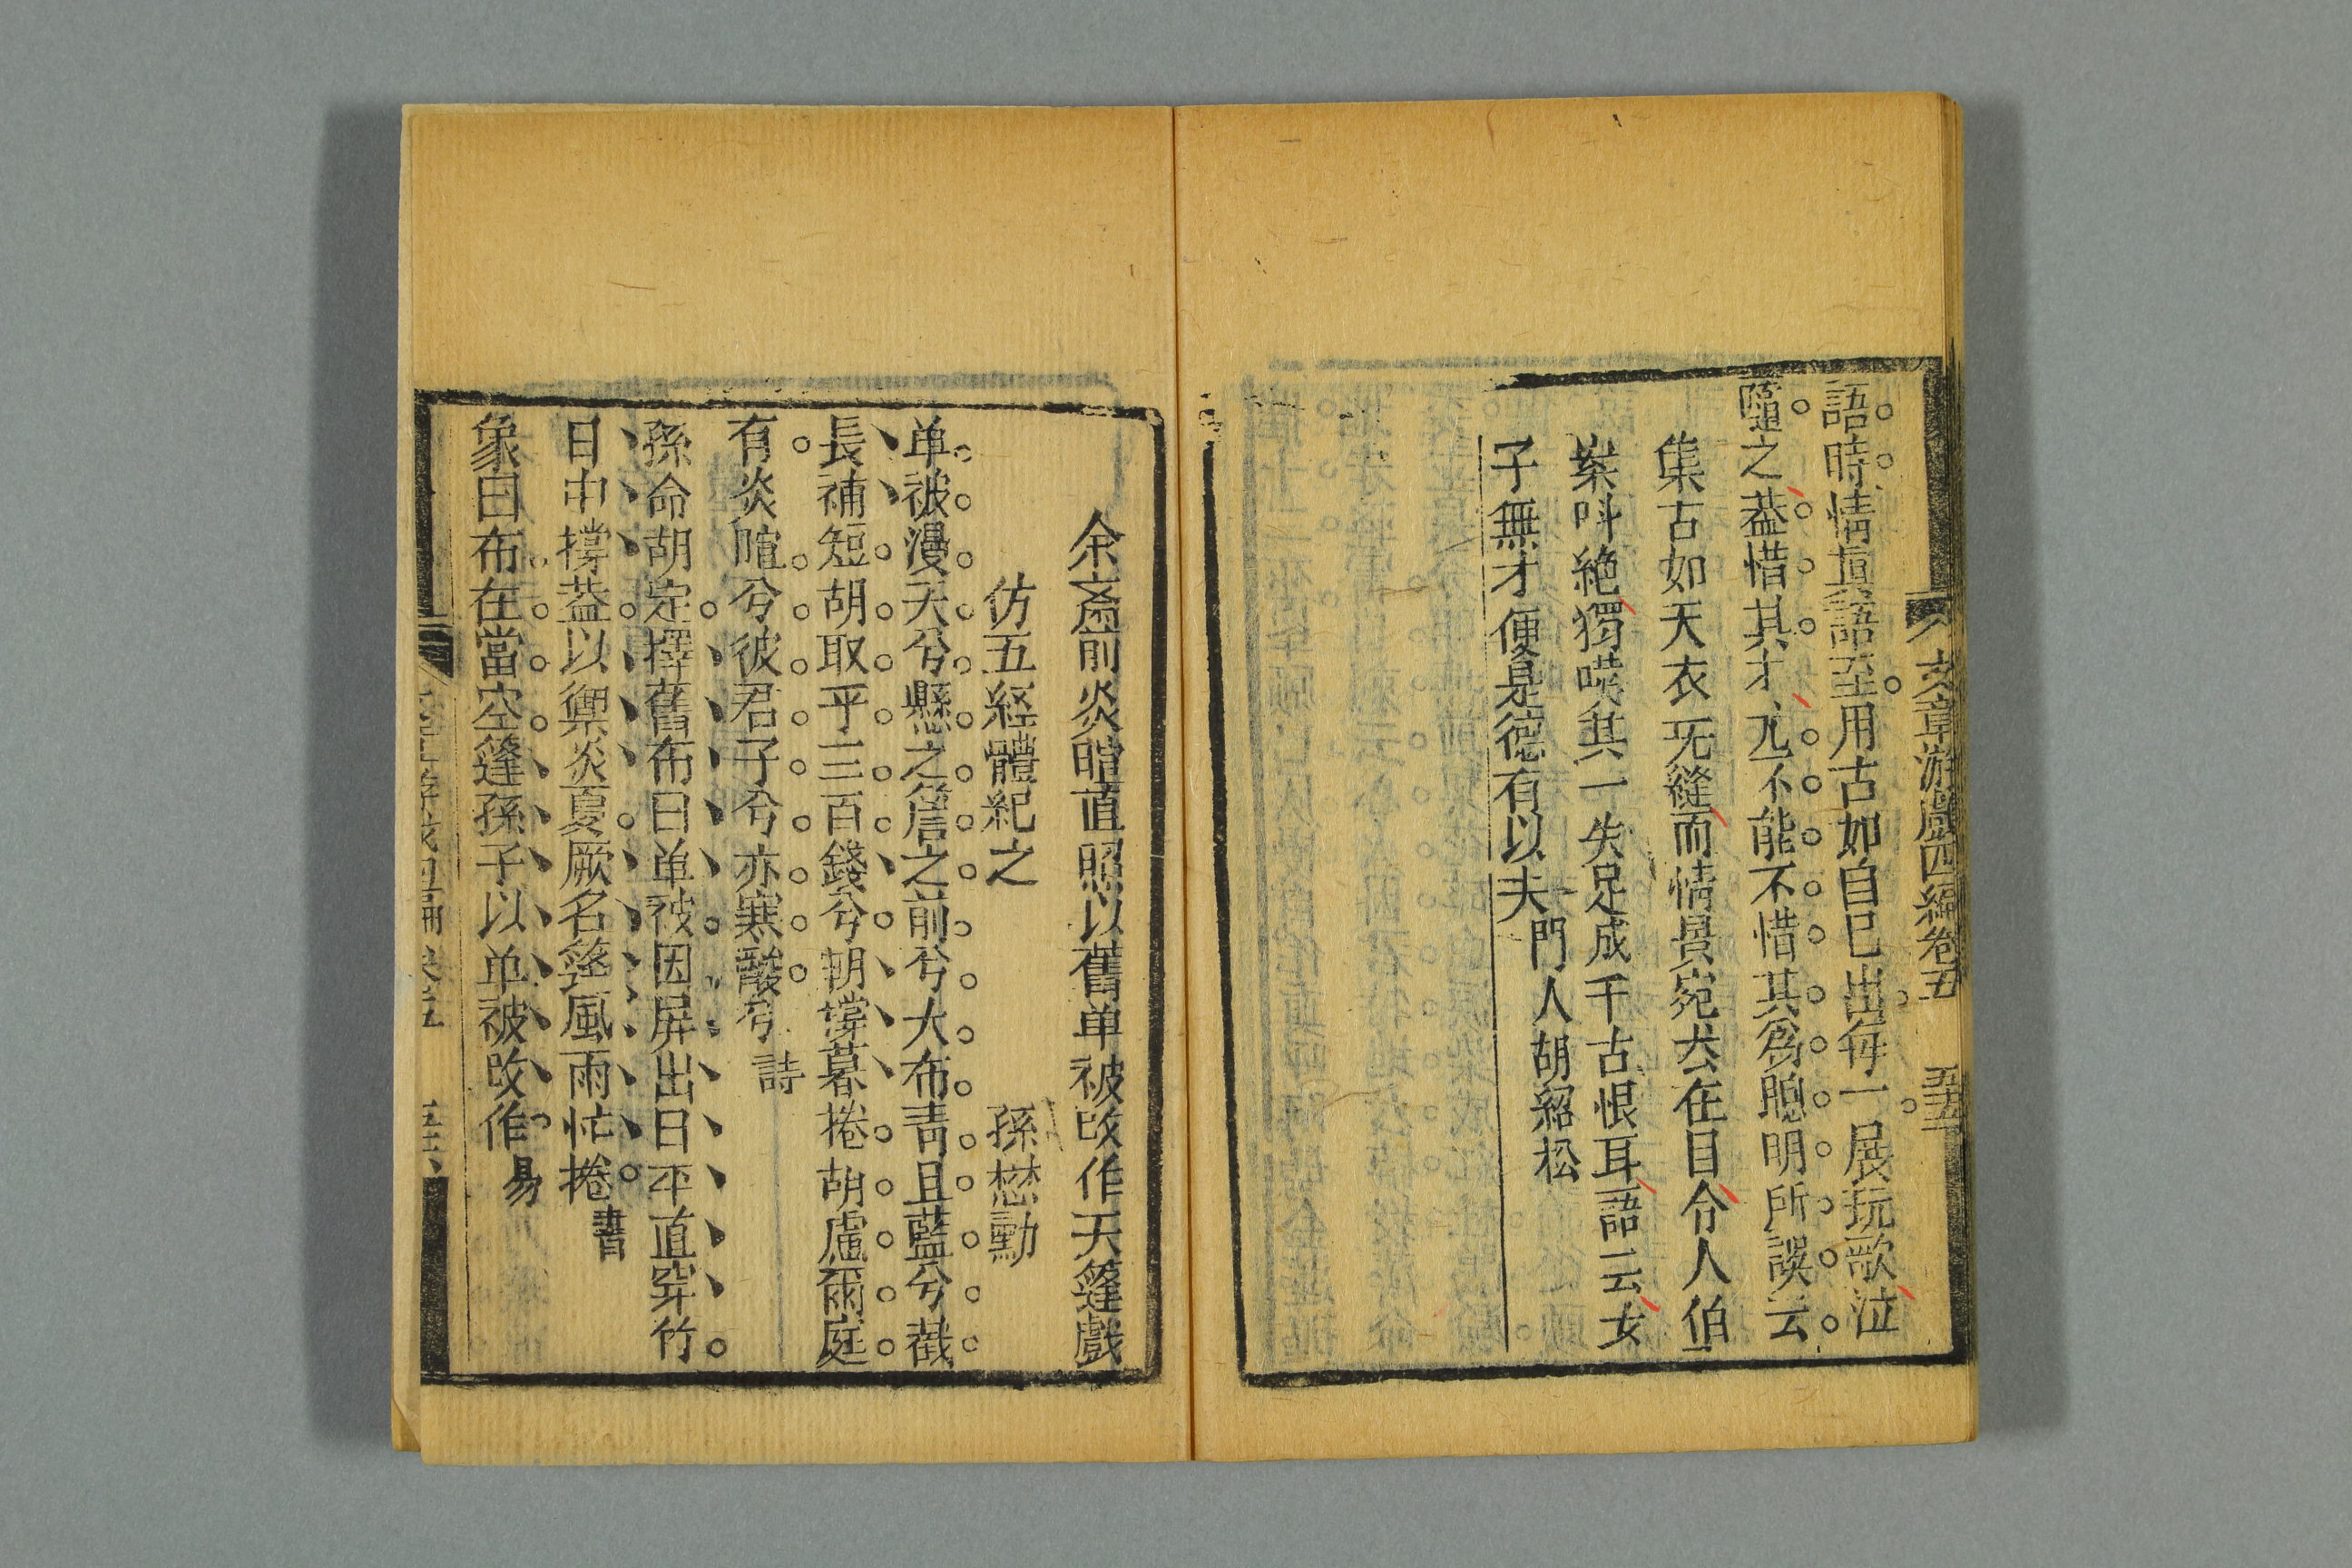 文章游戲四編卷五 五五
語時情真語至用古如自己出每一展玩歌泣
隨之葢惜其才尤不能不惜其為聰明所誤云
集古如天衣无縫而情景宛然在目令人伯
案呌絶獨嘆其一失足成千古恨耳語云女
子無才便是德有以夫 門人胡紹松
余齋前炎暄直照以舊单被改作天篷戲
仿五経體紀之 孫懋勳
单被漫天兮懸之簷之前兮大布靑且藍兮截
長補短胡取乎三百錢兮朝撐暮捲胡盧爾庭
有炎暄兮彼君子兮亦寒酸兮 詩
孫命胡定擇舊布曰单被因屏出日平直穿竹
日中撐葢以禦炎夏厥名篷風雨忙捲 書
象曰布在當空篷孫子以单被改作 易